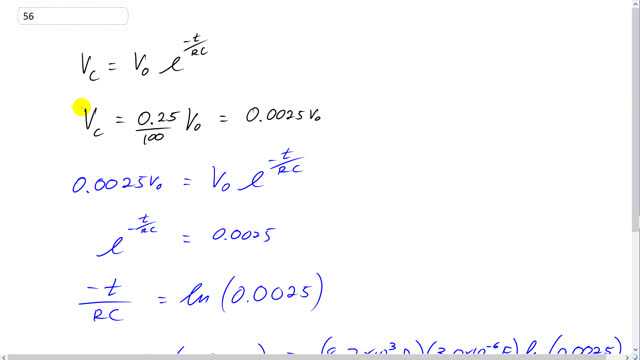 56
V_c = V_0 e^{-t/RC}
V_c = 0.25/100 V_0 = 0.0025 V_0
0.0025 V_0 = V_0 e^{-t/RC}
e^{-t/RC} = 0.0025
-t/RC = ln(0.0025)